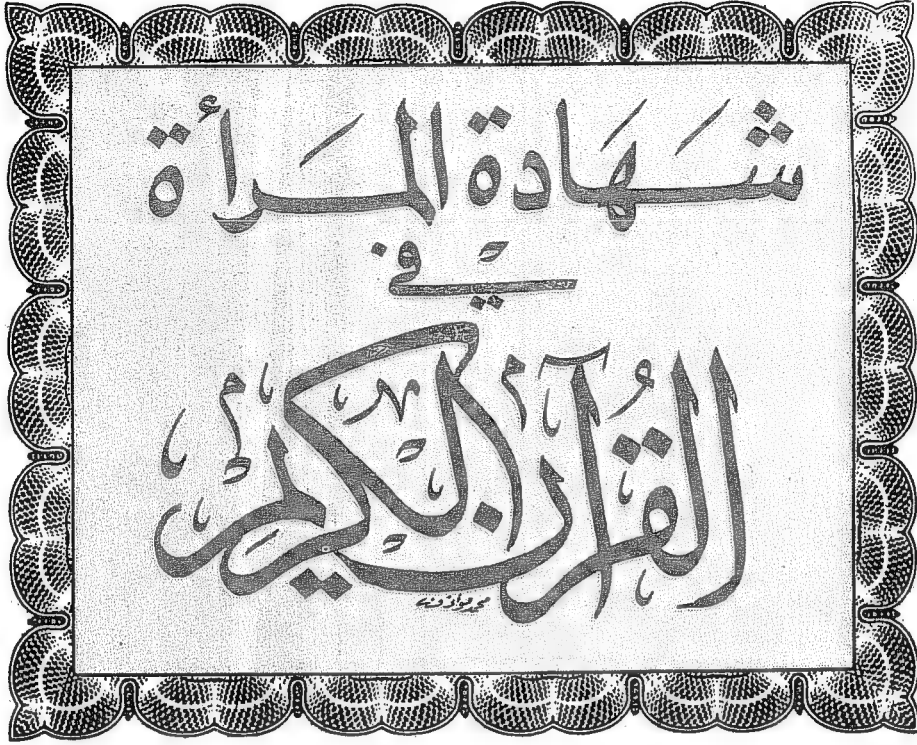 شهادة المرأة
في
القُرآن الكريم